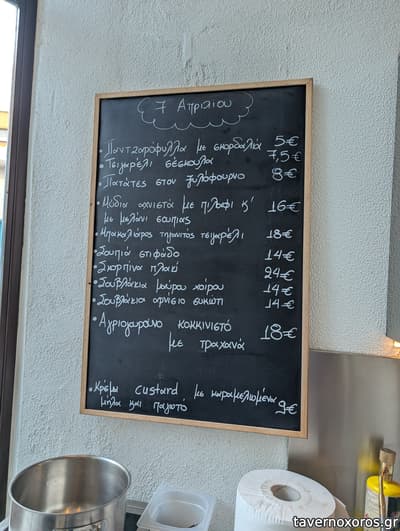 7 Απριλίου
• Παντζαρόφυλλα με σκορδαλιά 5€
• Τσιγαρέλι σέσκουλα 7,5€
• Πατάτες στον ξυλόφουρνο 8€
• Μύδια αχνιστά με πιλάφι κ' 16€
με μελάνι σουπιας
• Μπακαλιάρος τηγανιτός τσιγαρέλι 18€
• Σουπιά στιφάδο 14€
• Σκορπίνα πλακί 24€
• Σουβλάκια μαύρου χοίρου 14€
• Σουβλάκια αρνίσιο συκώτι 14€
• Αγριογούρουνο κοκκινιστό 18€
με τραχανά
• Κρέμα custard με καραμελωμένα
μήλα και παγωτό 9€
tavernoxoros.gr